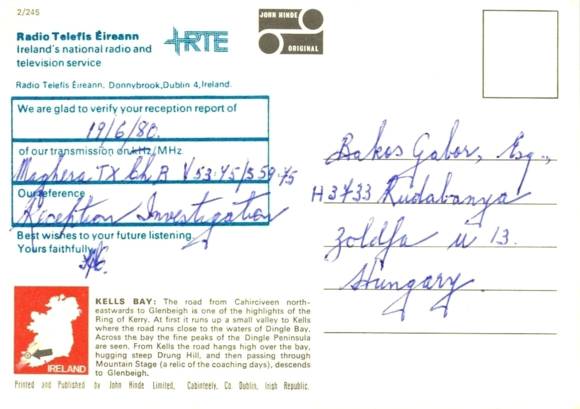 2/245
Radio Telefís Éireann
Ireland's national radio and
television service
RTE
JOHN HINDE
ORIGINAL
Radio Telefís Éireann, Donnybrook, Dublin 4, Ireland.
We are glad to verify your reception report of
19/6/80.
of our transmission on kHz/MHz
Maghera TX Ch B V 53·75/S 59·75
Our reference
Reception Investigation
Best wishes to your future listening
Yours faithfully
Bakos Gabor, Esq.,
H 3733 Rudabanya
Zoldfa u 13.
Hungary.
IRELAND
KELLS BAY: The road from Cahirciveen north-
eastwards to Glenbeigh is one of the highlights of the
Ring of Kerry. At first it runs up a small valley to Kells
where the road runs close to the waters of Dingle Bay.
Across the bay the fine peaks of the Dingle Peninsula
are seen. From Kells the road hangs high over the bay,
hugging steep Drung Hill, and then passing through
Mountain Stage (a relic of the coaching days), descends
to Glenbeigh.
Printed and Published by John Hinde Limited, Cabinteely, Co. Dublin, Irish Republic.